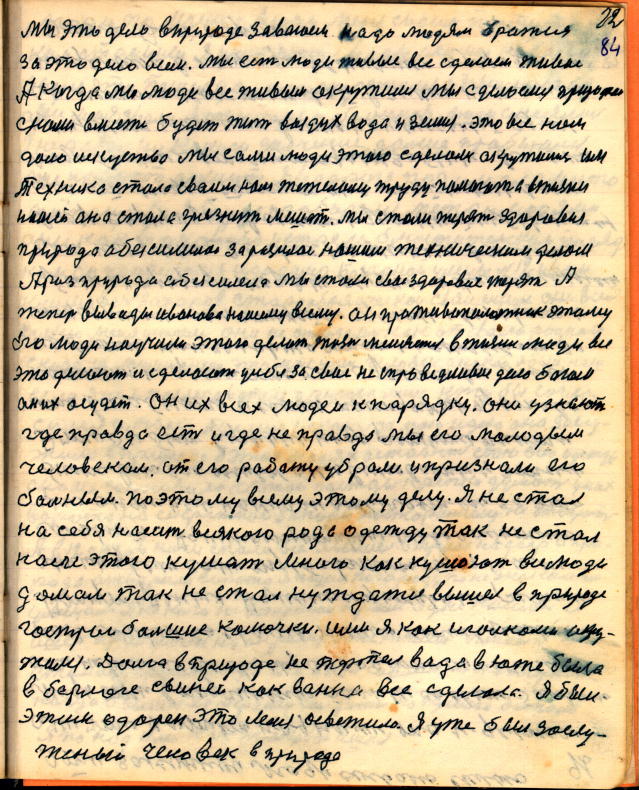 22
84
мы это дело в природе завоюем надо людям братся
за это дело всем. мы есть люди живые все сделаем живое
А когда мы люди все живым окружим мы сделаем природой
с нами вместе будет жит воздух вода и земля. это все нам
дало искуство мы сами люди этого сделали окружили им
Техника стала своим нам тежелому труду помогат а в жизни
нашей она стала грезнит мешат. мы стали терят здоровия
природа абезсилила заразилас нашим техническим делом
А раз природа абезсилела мы стали свае здоровие терят А
тепер выводы иванова нашему всему. он противоположник этому
Его люди научили этого делат
это делают и сделают у себя за свае не справедливое дело богом
он их осудит. он их всех людей к парядку. они узнают
где правда ест и где не правда мы его молодым
человеком. от его работы убрали и признали его
болным. поэтому всему этому делу. Я не стал
на себя насит всякого рода одежду так не стал
насле этого кушат много как кушают все люди
домам так не стал нуждатся вышел в природе
гострые болшие камочки. ими я как иголками окру-
жался. Долга в природе не терпел вада в юже была
в берлоге свиней как ванна все сделала. Я был
этим одарен это меня осветило. Я уже был заслу-
женый человек в природе